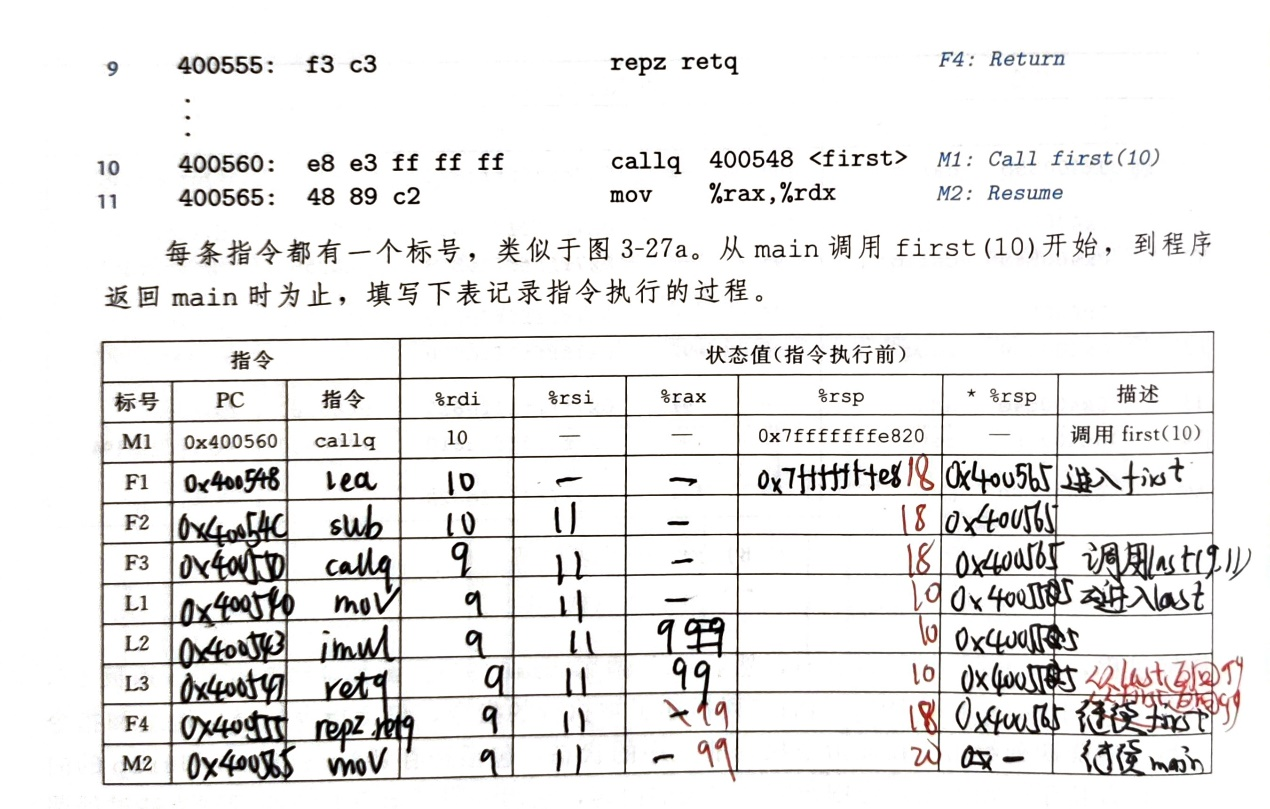 9 400555: f3 c3 repz retq F4: Return
10 400560: e8 e3 ff ff ff callq 400548 <first> M1: Call first(10)
11 400565: 48 89 c2 mov %rax,%rdx M2: Resume
每条指令都有一个标号，类似于图 3-27a。从 main 调用 first(10)开始，到程序
返回 main 时为止，填写下表记录指令执行的过程。
指令 状态值(指令执行前)
标号 PC 指令 %rdi %rsi %rax %rsp * %rsp 描述
M1 0x400560 callq 10 — — 0x7fffffffe820 — 调用 first(10)
F1 0x400548 lea 10 — — 0x7fffffffe818 0x400565 进入first
F2 0x40054C sub 10 11 — 18 0x400565
F3 0x400550 callq 9 11 — 18 0x400565 调用last(9,11)
L1 0x400540 mov 9 11 — 10 进入last
L2 0x400543 imul 9 11 9 10
L3 0x400547 retq 9 11 99 10
F4 0x400555 repz retq 9 11 99 18 0x400565 first
M2 0x400565 mov 9 11 — 99 20 — main